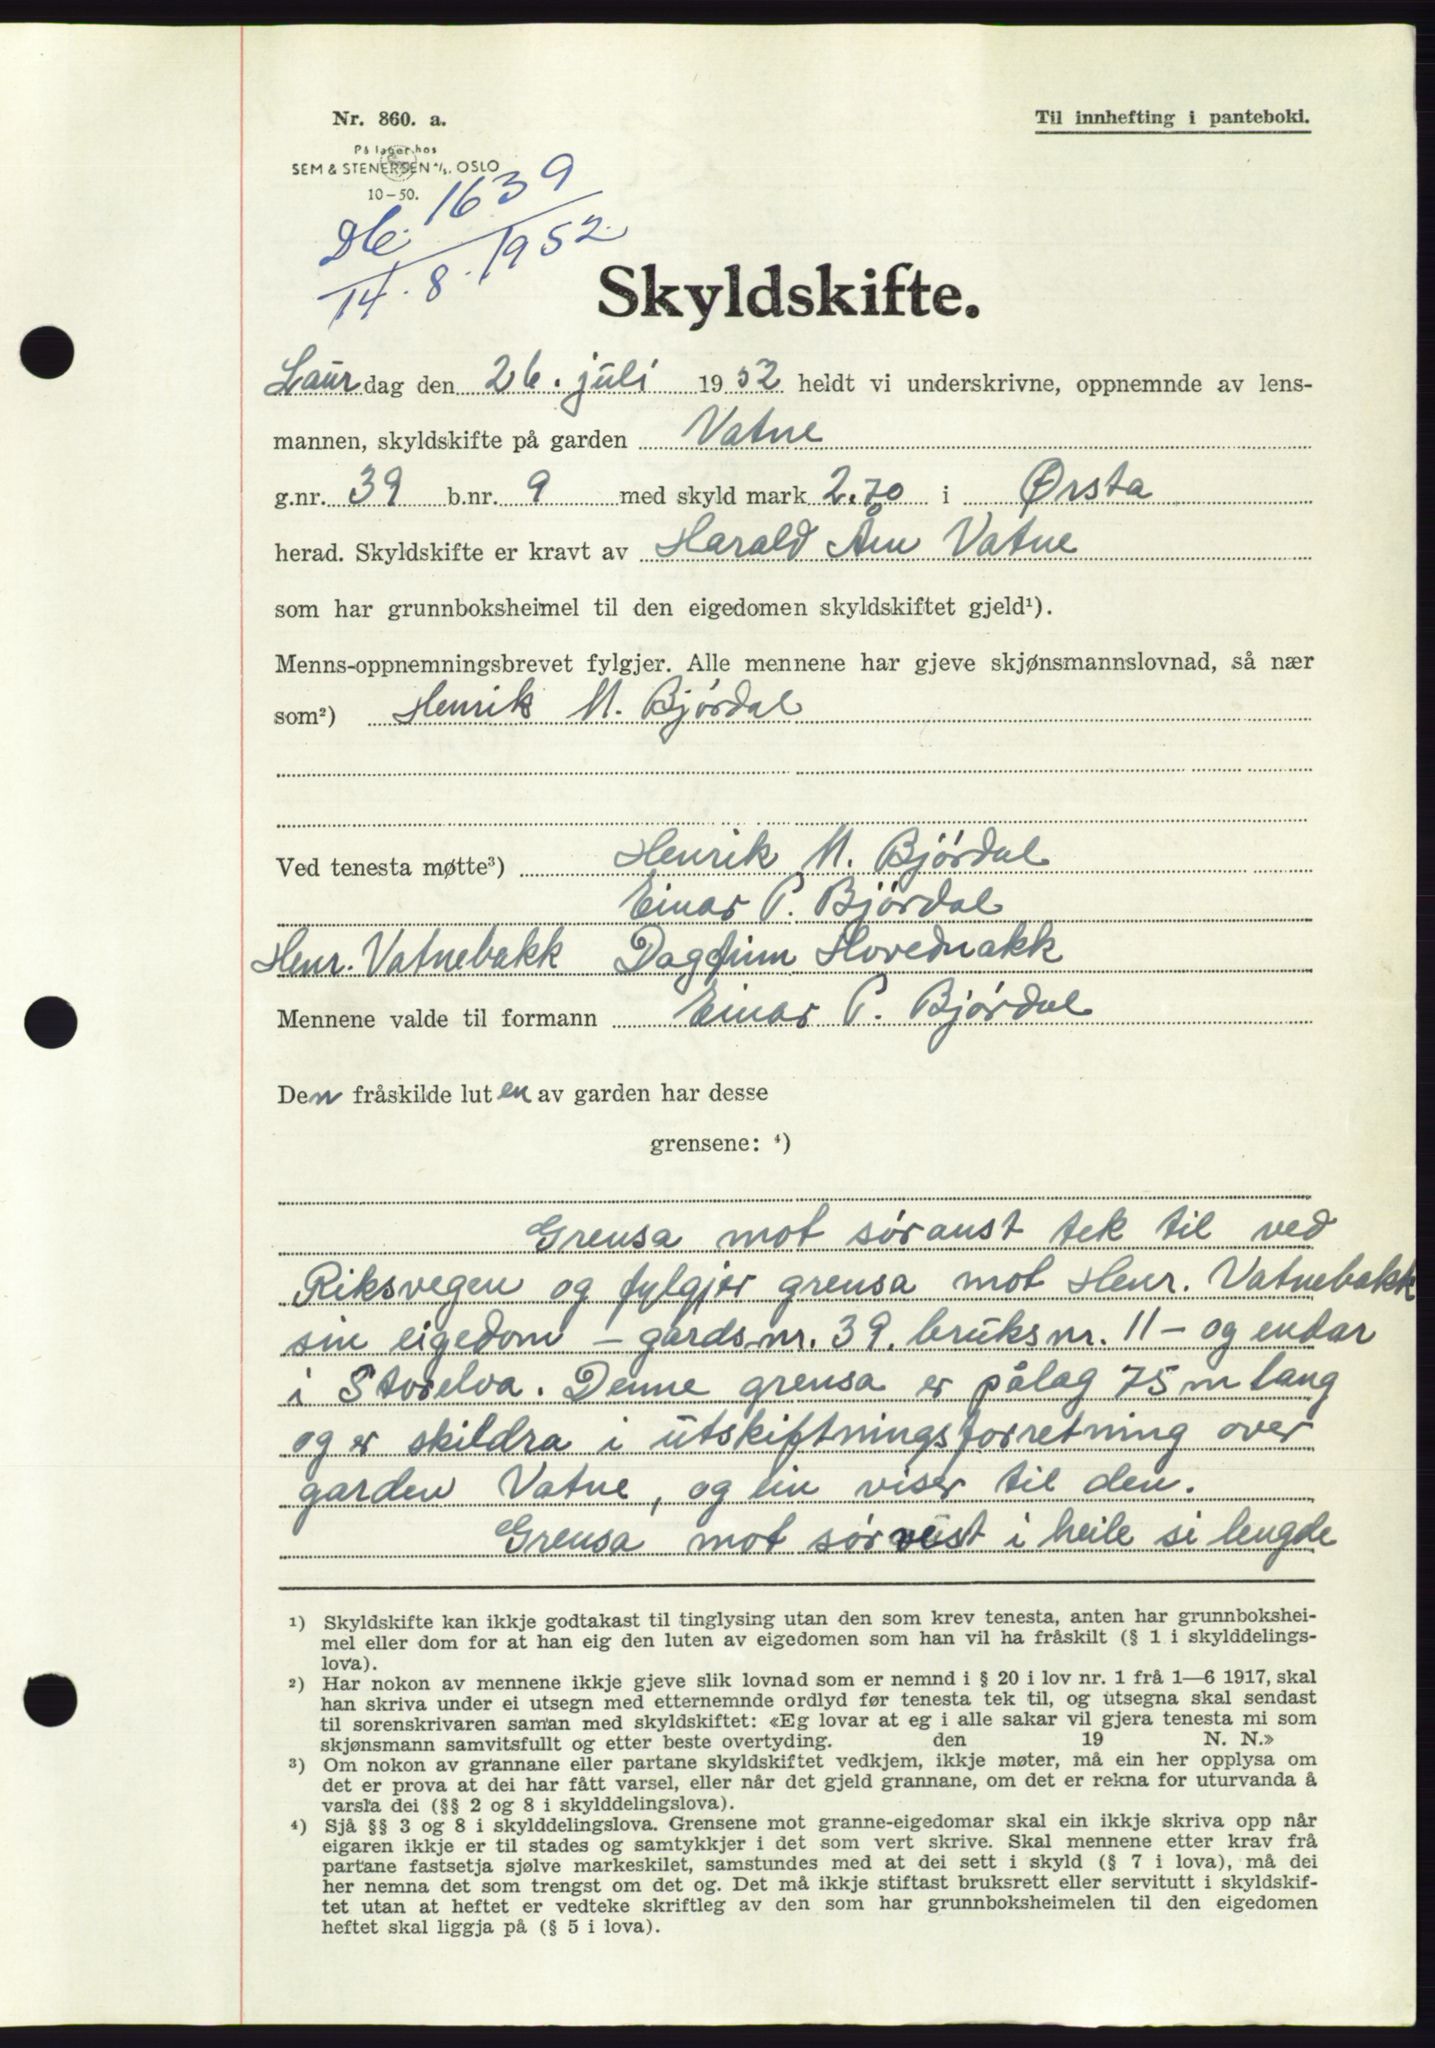 Nr. 860. a.
Til innhefting i panteboki.
På lager hos
SEM & STENERSEN A/S. OSLO
10-50.
Db. 1639
14.8.1952.
Skyldskifte.
Laurdag den 26. juli 1952 heldt vi underskrivne, oppnemnde av lens-
mannen, skyldskifte på garden Vatne
g.nr. 39 b.nr. 9 med skyld mark 2.70 i Ørsta
herad. Skyldskifte er kravt av Harald Åm Vatne
som har grunnboksheimel til den eigedomen skyldskiftet gjeld¹).
Menns-oppnemningsbrevet fylgjer. Alle mennene har gjeve skjønsmannslovnad, så nær
som²) Henrik M. Bjórdal
Ved tenesta møtte³) Henrik M. Bjórdal
Einar P. Bjórdal
Henr. Vatnebakk Dagfinn Hovednakk
Mennene valde til formann Einar P. Bjórdal
Den fråskilde luten av garden har desse
grensene: ⁴)
Grensa mot sóraust tek til ved
Riksvegen og fylgjer grensa mot Henr. Vatnebakk
sin eigedom – gardsnr. 39. bruksnr. 11 – og endar
i Storelva. Denne grensa er pålag 75 m lang
og er skildra i utskiftningsforretning over
garden Vatne, og ein viser til den.
Grensa mot sórvest i heile si lengde
¹) Skyldskifte kan ikkje godtakast til tinglysing utan den som krev tenesta, anten har grunnbokshei-
mel eller dom for at han eig den luten av eigedomen som han vil ha fråskilt (§ 1 i skylddelings-
lova).
²) Har nokon av mennene ikkje gjeve slik lovnad som er nemnd i § 20 i lov nr. 1 frå 1—6 1917, skal
han skriva under ei utsegn med etternemnde ordlyd før tenesta tek til, og utsegna skal sendast
til sorenskrivaren saman med skyldskiftet: «Eg lovar at eg i alle sakar vil gjera tenesta mi som
skjønsmann samvitsfullt og etter beste overtyding. den 19 N. N.»
³) Om nokon av grannane eller partane skyldskiftet vedkjem, ikkje møter, må ein her opplysa om
det er prova at dei har fått varsel, eller når det gjeld grannane, om det er rekna for uturvanda å
varsla dei (§§ 2 og 8 i skylddelingslova).
⁴) Sjå §§ 3 og 8 i skylddelingslova. Grensene mot granne-eigedomar skal ein ikkje skriva opp når
eigaren ikkje er til stades og samtykkjer i det som vert skrive. Skal mennene etter krav frå
partane fastsetja sjølve markeskilet, samstundes med at dei sett i skyld (§ 7 i lova), må dei
her nemna det som trengst om det og. Det må ikkje stiftast bruksrett eller servitutt i skyldskif-
tet utan at heftet er vedteke skriftleg av den som har grunnboksheimelen til den eigedomen
heftet skal liggja på (§ 5 i lova).